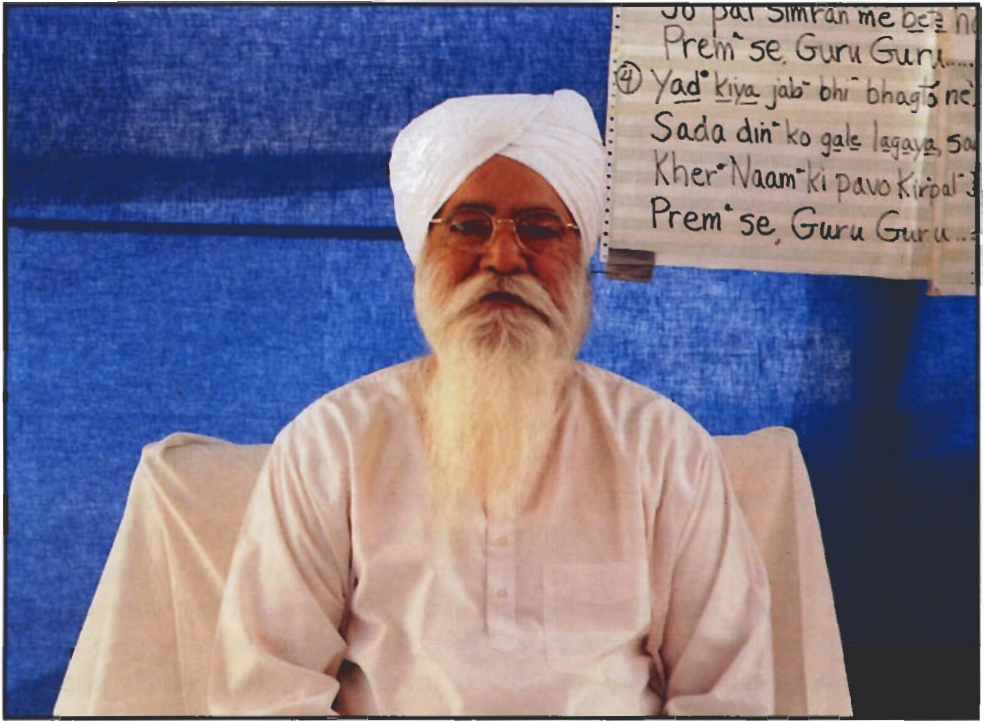 Jo pal Simran me
Prem se, Guru Guru.....
④ Yad kiya jab bhi bhagto ne
Sada din ko gale lagaya,
Kher Naam ki pavo Kirpal
Prem se, Guru Guru...